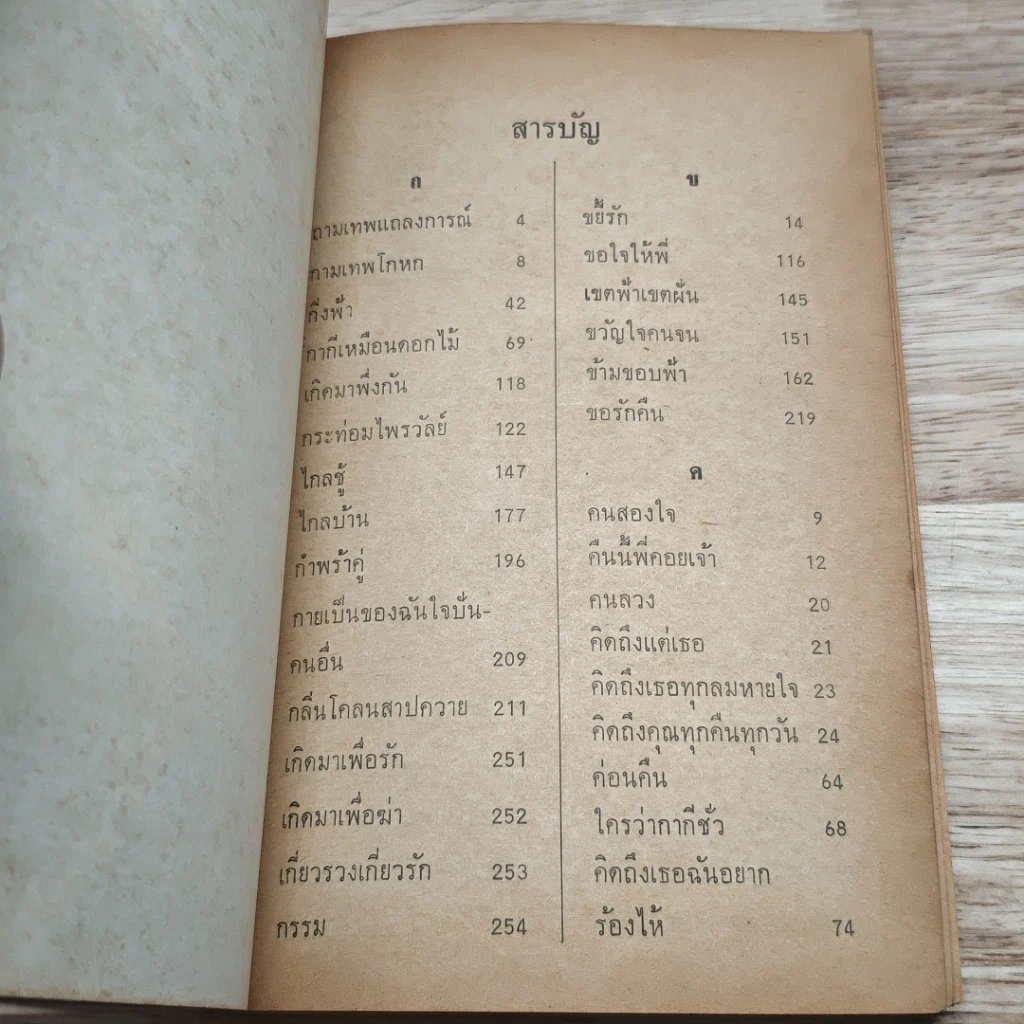 สารบัญ
ก
กามเทพแถลงการณ์ 4
กามเทพโกหก 8
กิ่งฟ้า 42
กากีเหมือนดอกไม้ 69
เกิดมาพึ่งกัน 118
กระท่อมไพรวัลย์ 122
ไกลชู้ 147
ไกลบ้าน 177
กำพร้าคู่ 196
กายเป็นของฉันใจปั่น-
คนอื่น 209
กลิ่นโคลนสาปควาย 211
เกิดมาเพื่อรัก 251
เกิดมาเพื่อฆ่า 252
เกี่ยวรวงเกี่ยวรัก 253
กรรม 254
ข
ขยี้รัก 14
ขอใจให้พี่ 116
เขตฟ้าเขตฝัน 145
ขวัญใจคนจน 151
ข้ามขอบฟ้า 162
ขอรักคืน 219
ค
คนสองใจ 9
คืนนี้พี่คอยเจ้า 12
คนลวง 20
คิดถึงแต่เธอ 21
คิดถึงเธอทุกลมหายใจ 23
คิดถึงคุณทุกคืนทุกวัน 24
ค่อนคืน 64
ใครว่ากากีชั่ว 68
คิดถึงเธอฉันอยาก
ร้องไห้ 74